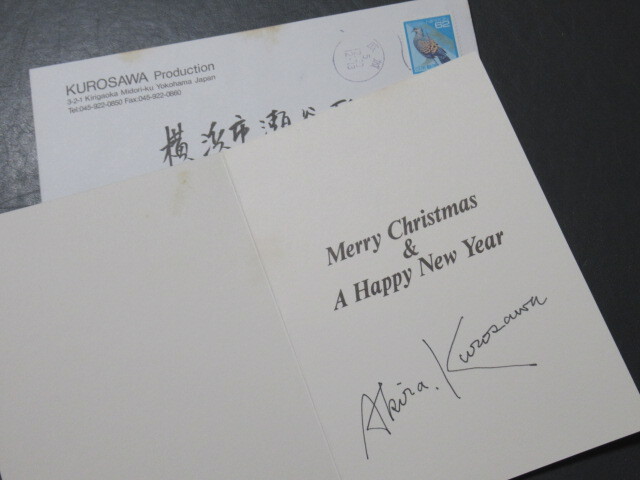 KUROSAWA Production
3-2-1 Kirigaoka Midori-ku Yokohama Japan
Tel:045-922-0850 Fax:045-922-0860
62
横浜市瀬谷
Merry Christmas
&
A Happy New Year
Akira. Kurosawa